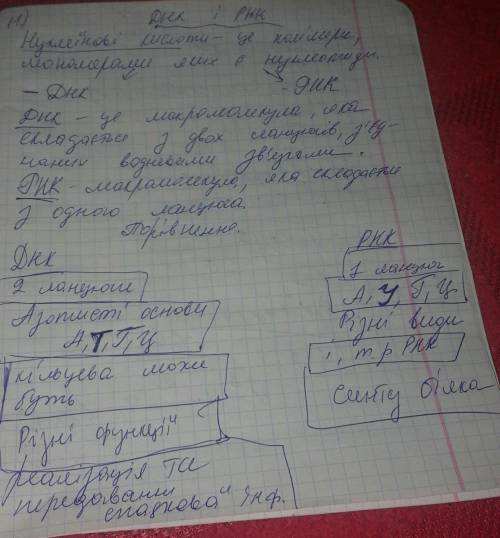 11) ДНК і РНК
Нуклеїнові кислоти - це полімери,
мономерами яких є нуклеотиди.
- ДНК - РНК
ДНК - це макромолекула, яка
складається з двох ланцюгів, з'єд-
наних водневими зв'язками.
РНК - макромолекула, яка складається
з одного ланцюга.
Порівняння.
ДНК
2 ланцюги
Азотисті основи
А, Т, Г, Ц
кільцева може
буть
Різні функції
реалізація та
передавання
спадкової інф.
РНК
1 ланцюг
А, У, Г, Ц
Різні види
і, т, р РНК
Синтез білка